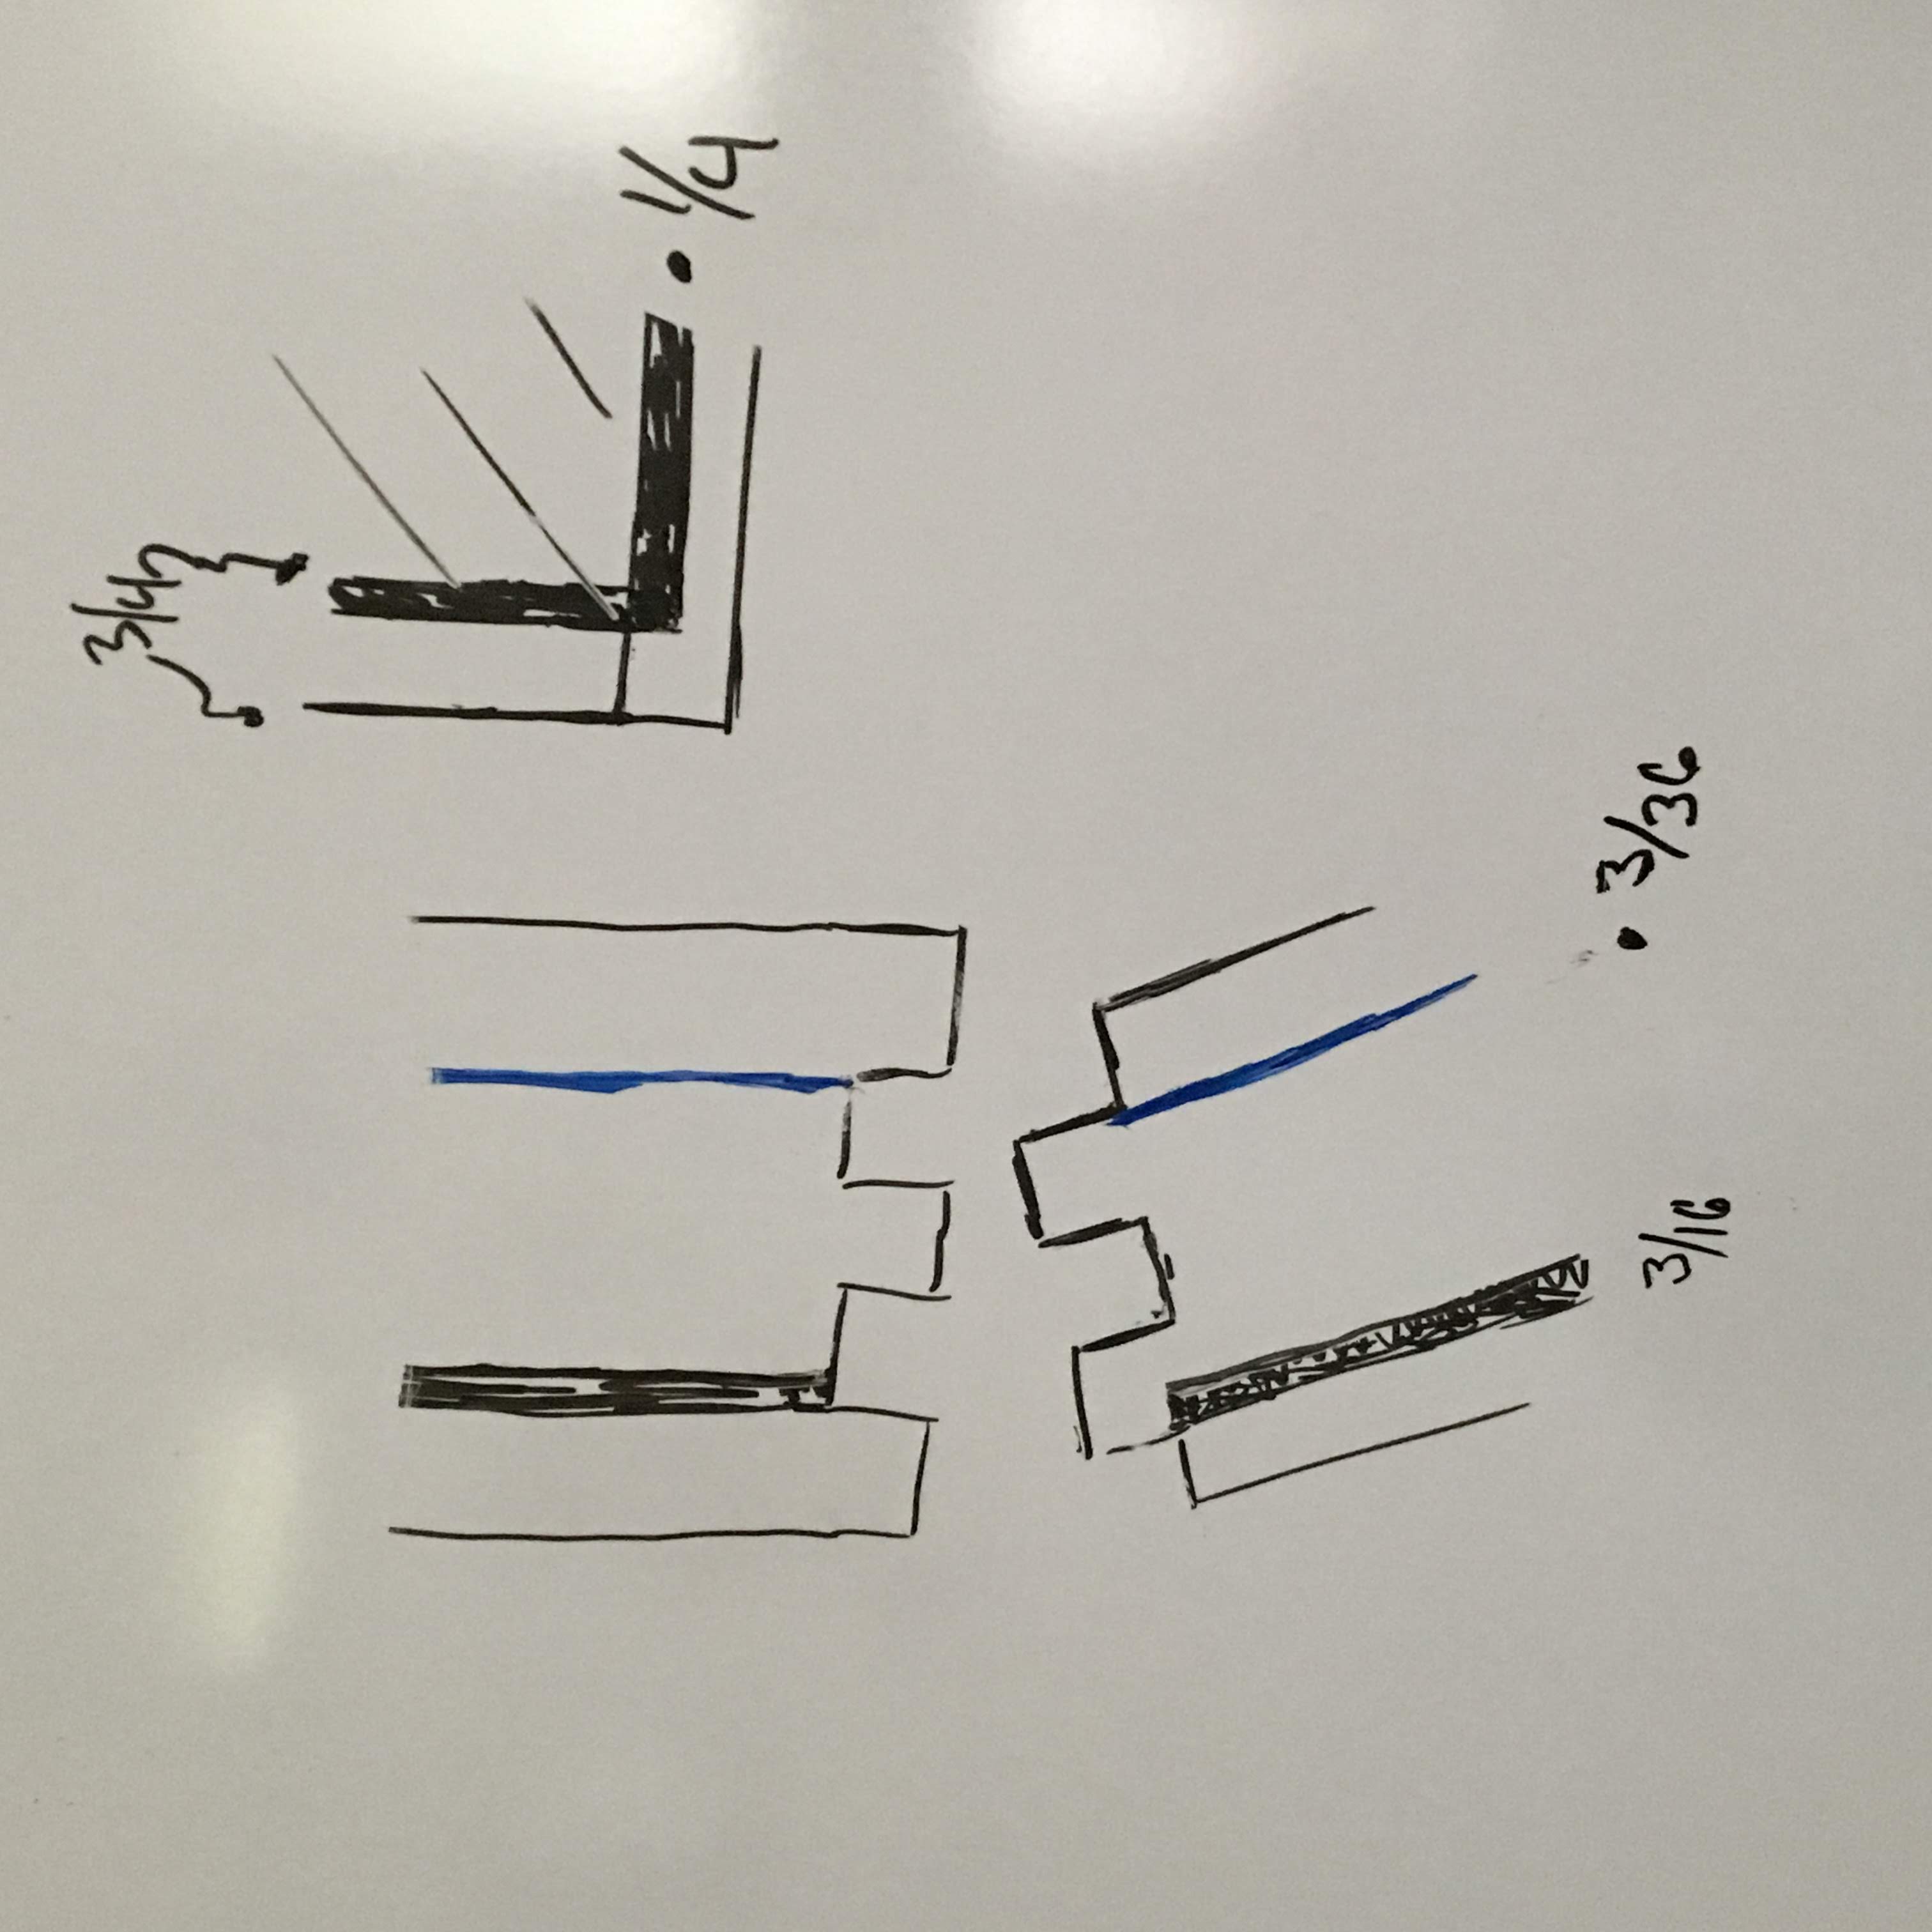 3/4
1/4
3/16
3/36